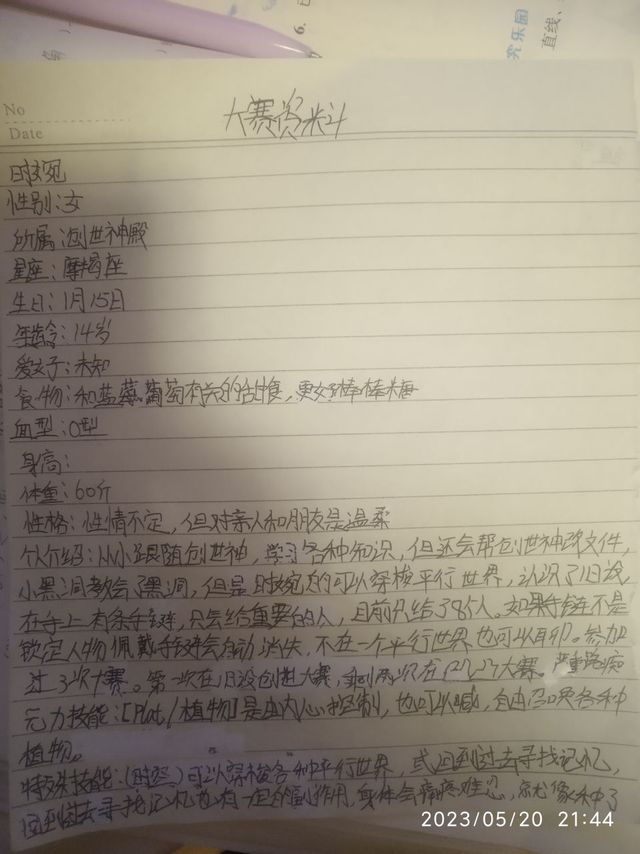 究乐园
直线、
6.
No
Date
大赛资料
时宛
性别:女
所属:创世神殿
星座:摩羯座
生日:1月15日
年龄:14岁
爱好:未知
食物:和蓝莓、葡萄有关的甜食,更好棒棒糖
血型:O型
身高:
体重:60斤
性格:性情不定,但对亲人和朋友是温柔
个人介绍:从小跟随创世神,学习各种知识,但还会帮创世神改文件,
小黑洞教会了黑洞,但是时宛真的可以穿梭平行世界,认识了旧设,
在手上有条手链,只会给重要的人,目前只给了85人。如果手链不是
钦定人物佩戴手链会自动消失,不在一个平行世界也可以用。参加
过3次大赛。第一次在旧设创世大赛,剩两次在凹凸大赛。严重路痴
元力技能:[Plat/植物]是由内心控制,也可以喊,自由召唤各种
植物。
特殊技能:(时空)可以穿梭各种平行世界,或回到过去寻找记忆,
回到过去寻找记忆也有一定的副作用,身体会痛疼难忍,就像种了
2023/05/20 21:44